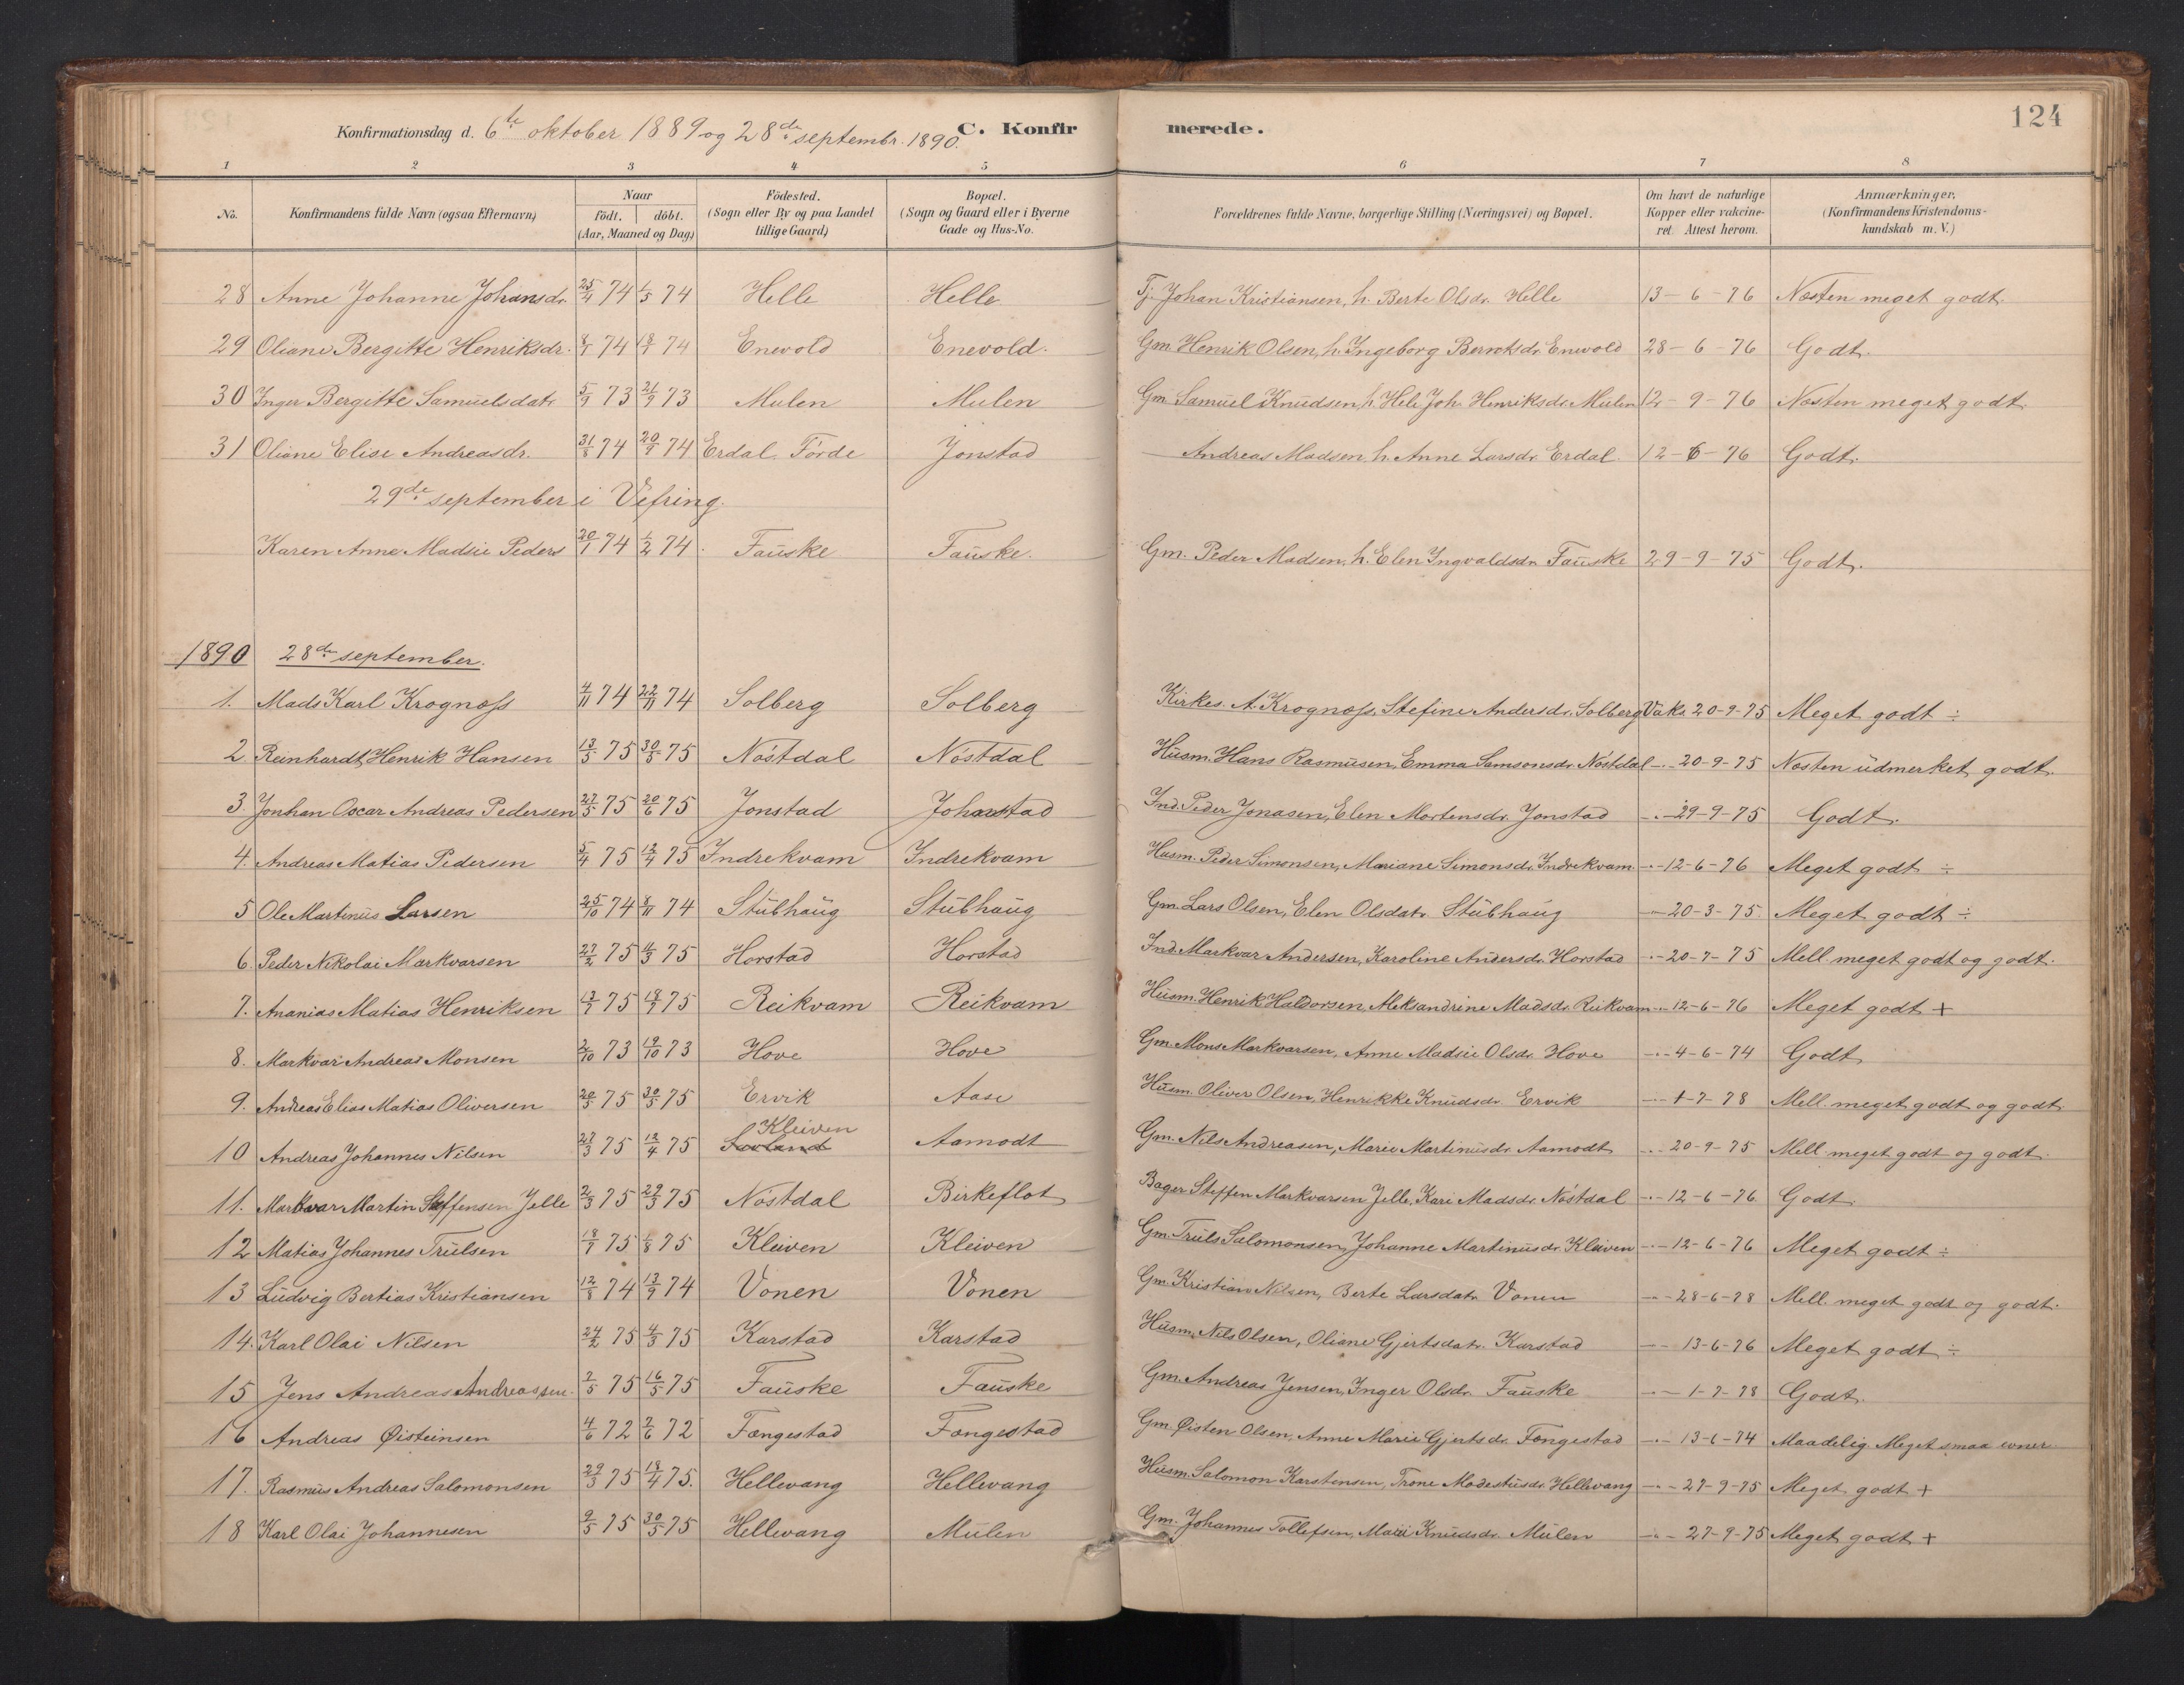 124
Konfirmationsdag d. 6te oktober 1889 og 28de septembr. 1890. C. Konfirmerede.
1 2 3 4 5 6 7 8
No. Konfirmandens fulde Navn (ogsaa Efternavn) Naar födt. döbt. (Aar, Maaned og Dag) Födested. (Sogn eller By og paa Landet tillige Gaard) Bopæl. (Sogn og Gaard eller i Byerne Gade og Hus-No. Forældrenes fulde Navne, borgerlige Stilling (Næringsvei) og Bopæl. Om havt de naturlige Kopper eller vakcineret. Attest herom. Anmærkninger. (Konfirmandens Kristendomskundskab m. V.)
28 Anne Johanne Johansdr. 25/4 74 1/5 74 Helle Helle Tj. Johan Kristiansen, h. Berte Olsdr. Helle 13-6-76 Næsten meget godt.
29 Oliane Bergitte Henriksdr. 8/1 74 18/1 74 Enevold Enevold. Gm. Henrik Olsen, h. Ingeborg Berntsdr. Enevold 28-6-76 Godt.
30 Inger Bergitte Samuelsdatr 5/9 73 21/9 73 Mulen Mulen Gm. Samuel Knudsen, h. Hele Joh. Henriksdr. Mulen 12-9-76 Næsten meget godt
31 Oliane Elise Andreasdr. 31/8 74 20/9 74 Erdal. Förde Jonstad Andreas Madsen, h. Anne Larsdr. Erdal. 12-6-76 Godt.
29de september i Vefring.
Karen Anne Madsie Peders 20/1 74 1/2 74. Fauske Fauske. Gm. Peder Madsen, h. Elen Ingvaldsdr. Fauske 29-9-75 Godt.
1890 28de september.
1. Mads Karl Krognæss 4/11 74 22/11 74 Solberg Solberg Kirkes. A. Krognæss, Stefine Andersdr. Solberg Vaks. 20-9-75 Meget godt ÷
2 Reinhardt Henrik Hansen 13/5 75 30/5 75 Nóstdal Nóstdal Husm. Hans Rasmusen, Emma Samsonsdr. Nóstdal -.- 20-9-75 Næsten udmerket godt.
3. Jonhan Oscar Andreas Pedersen 27/5 75 20/6 75 Jonstad Johnstad Ind. Peder Jonasen, Elen Mortensdr. Jonstad -.- 29-9-75 Godt.
4. Andreas Matias Pedersen 5/4 75 12/4 75 Indrekvam Indrekvam Husm. Peder Simonsen, Mariane Simonsdr. Indrekvam -.- 12-6-76 Meget godt ÷
5 Ole Martinus Larsen 25/10 74 8/11 74 Stubhaug Stubhaug Gm. Lars Olsen, Elen Olsdatr. Stubhaug -- 20-3-75. Meget godt ÷
6. Peder Nikolai Markvarsen 27/2 75 14/3 75 Horstad Horstad Ind. Markvar Andersen, Karoline Andersdr. Horstad -.- 20-7-75 Mell. meget godt og godt.
7. Ananias Matias Henriksen 13/7 75 18/7 75 Reikvam Reikvam Husm. Henrik Haldorsen, Aleksandrine Madsdr. Reikvam -.- 12-6-76 Meget godt +
8. Markvar Andreas Monsen 2/10 73 19/10 73 Hove Hove Gm. Mons Markvarsen, Anne Madsie Olsdr. Hove -.- 4-6-74 Godt
9. Andreas Elias Matias Oliversen 20/5 75 30/5 75 Ervik Aase Husm. Oliver Olsen, Henrikke Knudsdr. Ervik -.- 1-7-78 Mell. meget godt og godt
10 Andreas Johannes Nilsen 27/3 75 12/4 75 Kleiven Aamodt Gm. Nils Andreasen, Marie Martinusdr. Aamodt -.- 20-9-75 Mell meget godt og godt.
11. Markvar Martin Steffensen Jelle 2/3 75 29/3 75 Nóstdal Birkeflot Bager Steffen Markvarsen Jelle, Kari Madsdr. Nóstdal -.- 12-6-76 Godt
12 Matias Johannes Trulsen 18/7 75 1/8 75 Kleiven Kleiven Gm. Truls Salomonsen, Johanne Martinusdr. Kleiven -.- 12-6-76 Meget godt ÷
13 Ludvig Bertias Kristiansen 12/8 74 13/9 74 Vonen Vonen Gm. Kristian Nilsen, Berte Larsdatr. Vonen -.- 28-6-78 Mell. meget godt og godt.
14. Karl Olai Nilsen 24/2 75 4/3 75 Karstad Karstad Husm. Nils Olsen, Oliane Gjertsdatr. Karstad -- 13-6-76 Meget godt ÷
15 Jens Andreas Andreassen 2/5 75 16/5 75 Fauske Fauske Gm. Andreas Jensen, Inger Olsdr. Fauske -.- 1-7-78 Godt.
16 Andreas Øisteinsen 4/6 72 7/6 72 Fængestad Fængestad Gm. Øisten Olsen, Anne Marie Gjertsdr. Fængestad -.- 13-6-74 Maadelig. Meget smaa evner
17. Rasmus Andreas Salomonsen 29/3 75 18/4 75. Hellevang Hellevang Husm. Salomon Karstensen, Trone Modestusdr. Hellevang -.- 27-9-75 Meget godt +
18 Karl Olai Johannesen 9/5 75 30/5 75 Hellevang Mulen Gm. Johannes Tollefsen, Mari Knudsdr. Mulen -.- 27-9-75 Meget godt +